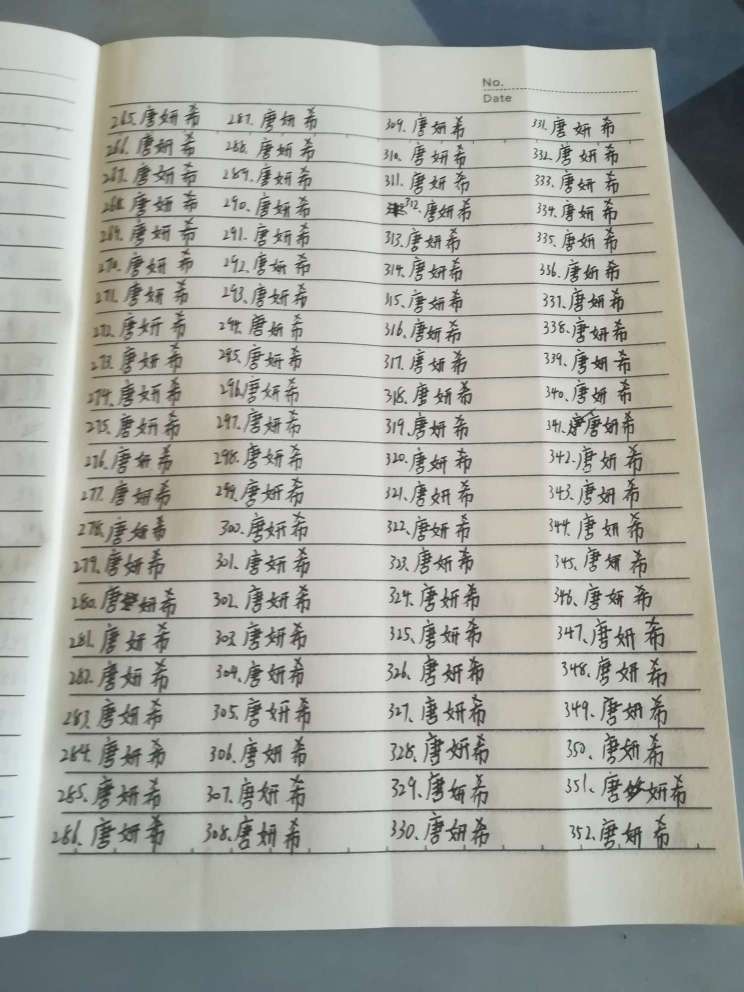 No.
Date
265.唐妍希
266.唐妍希
267.唐妍希
268.唐妍希
269.唐妍希
270.唐妍希
271.唐妍希
272.唐妍希
273.唐妍希
274.唐妍希
275.唐妍希
276.唐妍希
277.唐妍希
278.唐妍希
279.唐妍希
280.唐妍希
281.唐妍希
282.唐妍希
283.唐妍希
284.唐妍希
285.唐妍希
286.唐妍希
287.唐妍希
288.唐妍希
289.唐妍希
290.唐妍希
291.唐妍希
292.唐妍希
293.唐妍希
294.唐妍希
295.唐妍希
296.唐妍希
297.唐妍希
298.唐妍希
299.唐妍希
300.唐妍希
301.唐妍希
302.唐妍希
303.唐妍希
304.唐妍希
305.唐妍希
306.唐妍希
307.唐妍希
308.唐妍希
309.唐妍希
310.唐妍希
311.唐妍希
312.唐妍希
313.唐妍希
314.唐妍希
315.唐妍希
316.唐妍希
317.唐妍希
318.唐妍希
319.唐妍希
320.唐妍希
321.唐妍希
322.唐妍希
323.唐妍希
324.唐妍希
325.唐妍希
326.唐妍希
327.唐妍希
328.唐妍希
329.唐妍希
330.唐妍希
331.唐妍希
332.唐妍希
333.唐妍希
334.唐妍希
335.唐妍希
336.唐妍希
337.唐妍希
338.唐妍希
339.唐妍希
340.唐妍希
341.唐妍希
342.唐妍希
343.唐妍希
344.唐妍希
345.唐妍希
346.唐妍希
347.唐妍希
348.唐妍希
349.唐妍希
350.唐妍希
351.唐妍希
352.唐妍希